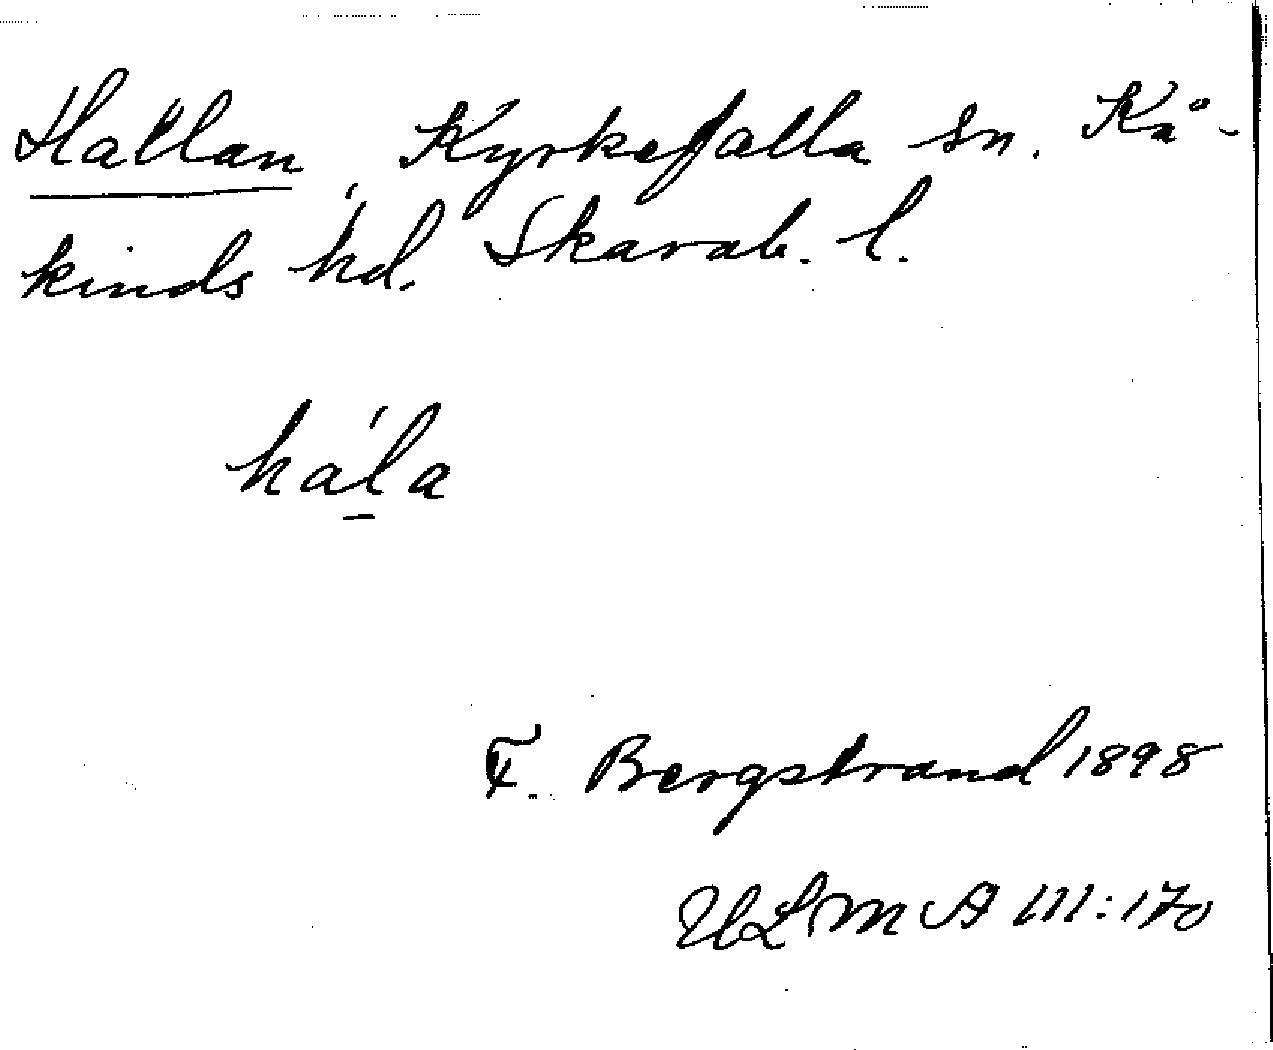 Hallan, Kyrkefalla sn. Kå-
kinds hd. Skarab. l.
hál̲a
F. Bergstrand 1898
ULMA 111:170